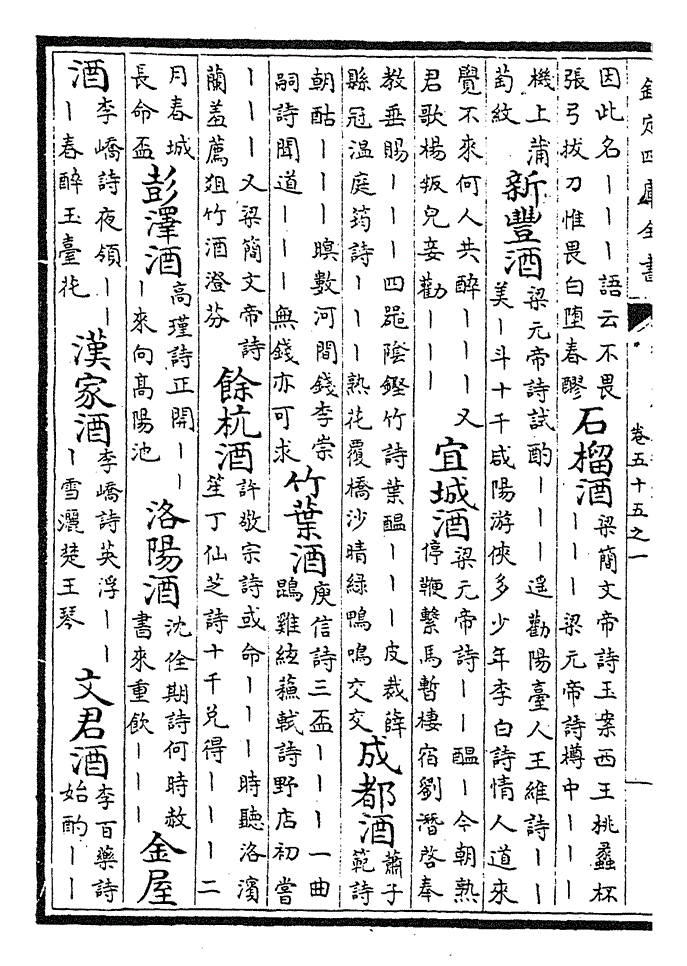 欽定四庫全書 卷五十五之一
因此名丨丨丨語云不畏
張弓拔刀惟畏白墮春醪
石榴酒
梁簡文帝詩玉案西王桃蠡杯
丨丨丨梁元帝詩樽中丨丨丨
機上蒲
萄紋
新豐酒
梁元帝詩試酌丨丨丨遥勸陽臺人王維詩丨丨
美丨斗十千咸陽游俠多少年李白詩情人道來
覺不來何人共醉丨丨丨又
君歌楊叛兒妾勸丨丨丨
宜城酒
梁元帝詩丨丨醖丨今朝熟
停鞭繫馬暫棲宿劉潛啓奉
教垂賜丨丨丨四器陰鏗竹詩葉醖丨丨丨皮裁薛
縣冠温庭筠詩丨丨丨熟花覆橋沙晴緑鴨鳴交交
成都酒
蕭子
範詩
朝酤丨丨丨暝數河間錢李崇
嗣詩聞道丨丨丨無錢亦可求
竹葉酒
庾信詩三盃丨丨丨一曲
鵾雞絃蘇軾詩野店初嘗
丨丨丨又梁簡文帝詩
蘭羞薦俎竹酒澄芬
餘杭酒
許敬宗詩或命丨丨丨時聽洛濱
笙丁仙芝詩十千兌得丨丨丨二
月春城
長命盃
彭澤酒
高瑾詩正開丨丨
丨來向高陽池
洛陽酒
沈佺期詩何時赦
書來重飲丨丨丨
金屋
酒
李嶠詩夜領丨丨
丨春醉玉臺花
漢家酒
李嶠詩英浮丨丨
丨雪灑楚王琴
文君酒
李百藥詩
始酌丨丨